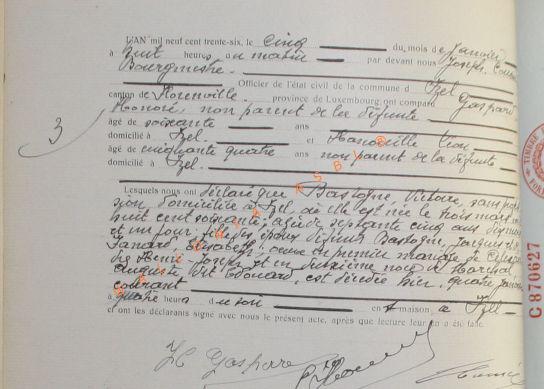 L'AN mil neuf cent trente-six, le cinq du mois de Janvier
à huit heures du matin par devant nous Joseph
Bourgmestre Officier de l'état civil de la commune d Izel
canton de Florenville province de Luxembourg; ont comparu Gaspard
Honoré, non parent de la défunte
âgé de soixante ans
3
domicilié à Izel et Léon
âgé de cinquante quatre ans non parent de la défunte
domicilié à Izel
Lesquels nous ont déclaré que Bastogne, Victoire, sans profes
sion, domiciliée à Izel, où elle est née le trois mars mil
huit cent soixante, âgée de septante cinq ans dix mois
et un jour, fille des époux défunts Bastogne, Jacques et
Elisabeth, veuve en premier mariage de
Henri-Joseph et en deuxième noces de
Auguste dit Edouard, est décédée hier, quatre janvier
courant
à quatre heures du soir en sa maison à Izel
et ont les déclarants signé avec nous le présent acte, après que lecture leur en a été faite.
H Gaspard
C 870627
TIMBRE